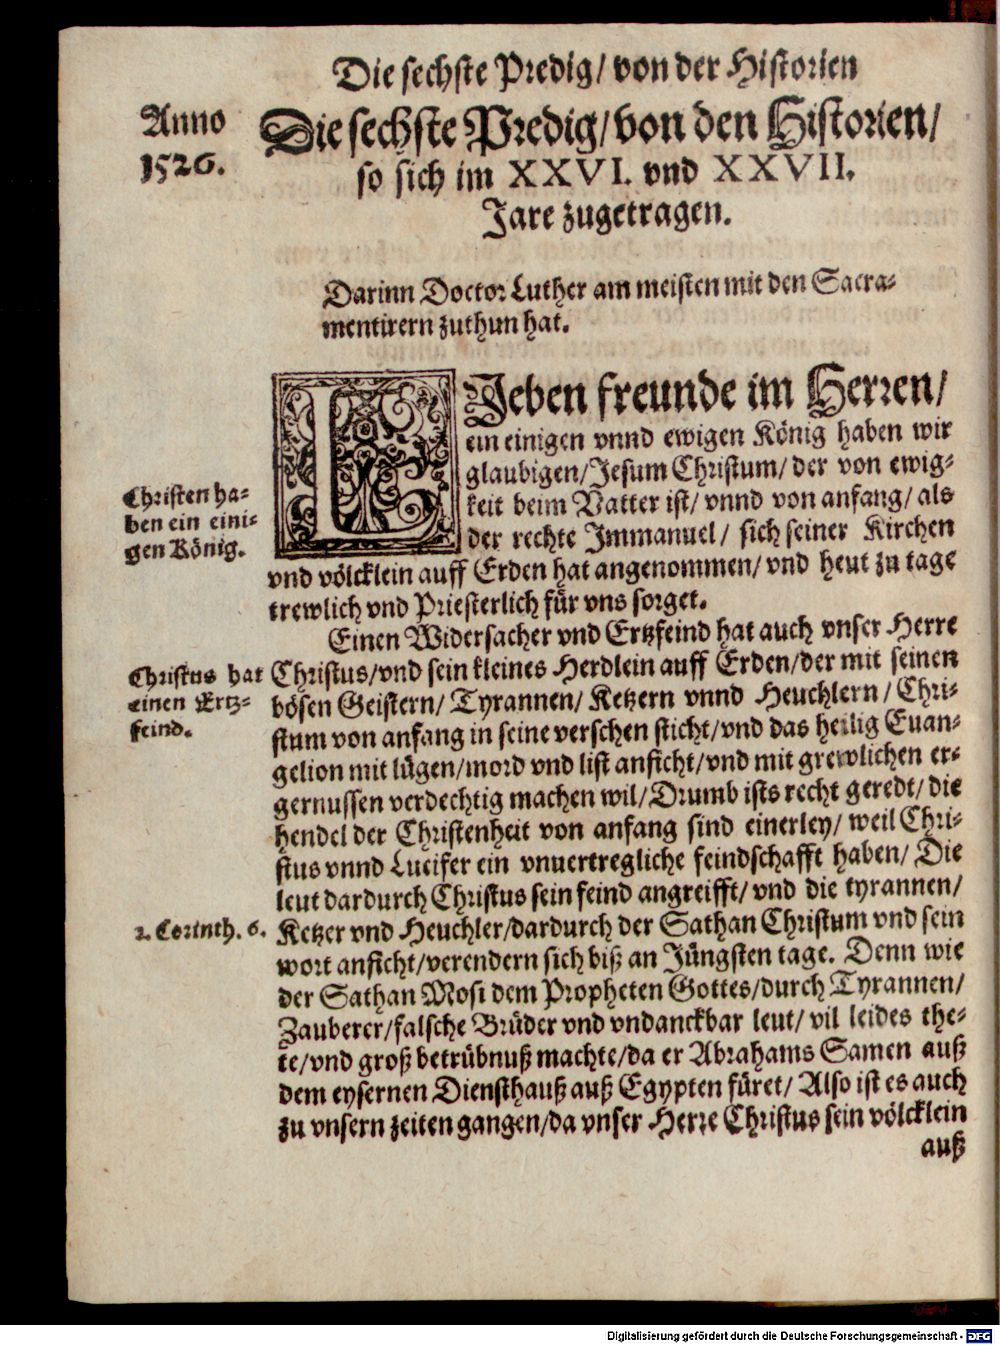 Die sechste Predig/ von der Historien
Anno
1526.
Die sechste Predig/ von den Historien/
so sich im XXVI. vnd XXVII.
Jare zugetragen.
Darinn Doctor Luther am meisten mit den Sacra-
mentirern zuthun hat.
LJeben freunde im Herren/
ein einigen vnnd ewigen König haben wir
glaubigen/ Jesum Christum/ der von ewig-
keit beim Vatter ist/ vnnd von anfang/ als
der rechte Immanuel/ sich seiner Kirchen
vnd völcklein auff Erden hat angenommen/ vnd heut zu tage
trewlich vnd Priesterlich für vns sorget.
Christen ha-
ben ein eini-
gen König.
Einen Widersacher vnd Ertzfeind hat auch vnser Herre
Christus/ vnd sein kleines Herdlein auff Erden/ der mit seinen
bösen Geistern/ Tyrannen/ Ketzern vnnd Heuchlern/ Chri-
stum von anfang in seine verschen sticht/ vnd das heilig Euan-
gelion mit lügen/ mord vnd list anficht/ vnd mit grewlichen er-
gernussen verdechtig machen wil/ Drumb ists recht geredt/ die
hendel der Christenheit von anfang sind einerley/ weil Chri-
stus vnnd Lucifer ein vnuertregliche feindschafft haben/ Die
leut dardurch Christus sein feind angreifft/ vnd die tyrannen/
Ketzer vnd Heuchler/ dardurch der Sathan Christum vnd sein
wort anficht/ verendern sich biß an Jüngsten tage. Denn wie
der Sathan Mosi dem Propheten Gottes/ durch Tyrannen/
Zauberer/ falsche Brüder vnd vndanckbar leut/ vil leides the-
te/ vnd groß betrübnuß machte/ da er Abrahams Samen auß
dem eysernen Diensthauß auß Egypten füret/ Also ist es auch
zu vnsern zeiten gangen/ da vnser Herre Christus sein völcklein
auß
Christus hat
einen Ertz-
feind.
2. Corinth. 6.
Digitalisierung gefördert durch die Deutsche Forschungsgemeinschaft - DFG